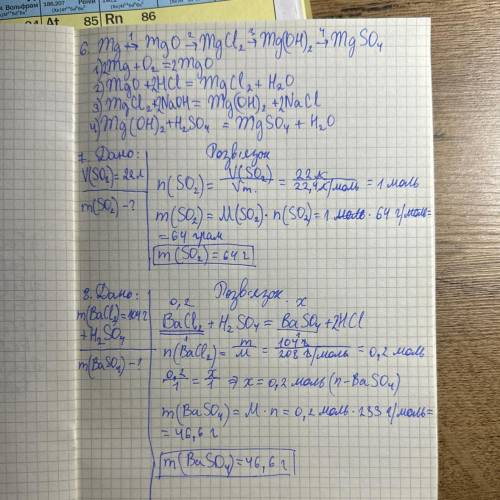 . Вольфрам 186,207 Рений
At 85 Rn 86
6. Mg →¹ MgO →² MgCl₂ →³ Mg(OH)₂ →⁴ MgSO₄
1) 2Mg + O₂ = 2MgO
2) MgO + 2HCl = MgCl₂ + H₂O
3) MgCl₂ + 2NaOH = Mg(OH)₂ + 2NaCl
4) Mg(OH)₂ + H₂SO₄ = MgSO₄ + H₂O
7. Дано:
V(SO₂) = 22л
m(SO₂) - ?
Розв'язок
n(SO₂) = V(SO₂)/Vm. = 22л/22,4л/моль = 1 моль
m(SO₂) = M(SO₂) · n(SO₂) = 1 моль · 64 г/моль =
= 64 грам
m(SO₂) = 64 г
8. Дано:
m(BaCl₂) = 104 г
+ H₂SO₄
m(BaSO₄) - ?
Розв'язок.
0,2 x
BaCl₂ + H₂SO₄ = BaSO₄ + 2HCl
1 1
n(BaCl₂) = m/M = 104г/208 г/моль = 0,2 моль
0,2/1 = x/1 ⇒ x = 0,2 моль (n - BaSO₄)
m(BaSO₄) = M · n = 0,2 моль · 233 г/моль =
= 46,6 г
m(BaSO₄) = 46,6 г